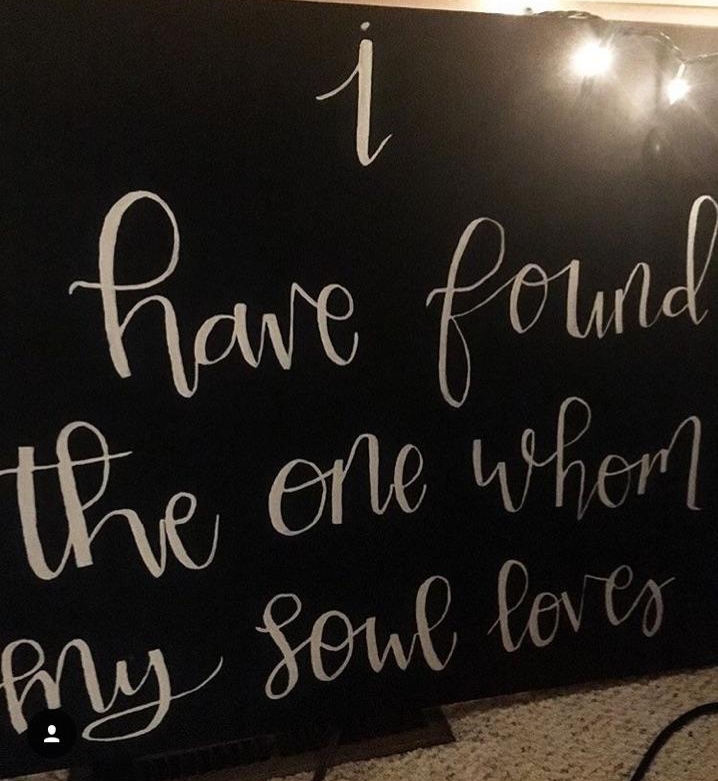 i
have found
the one whom
my soul loves